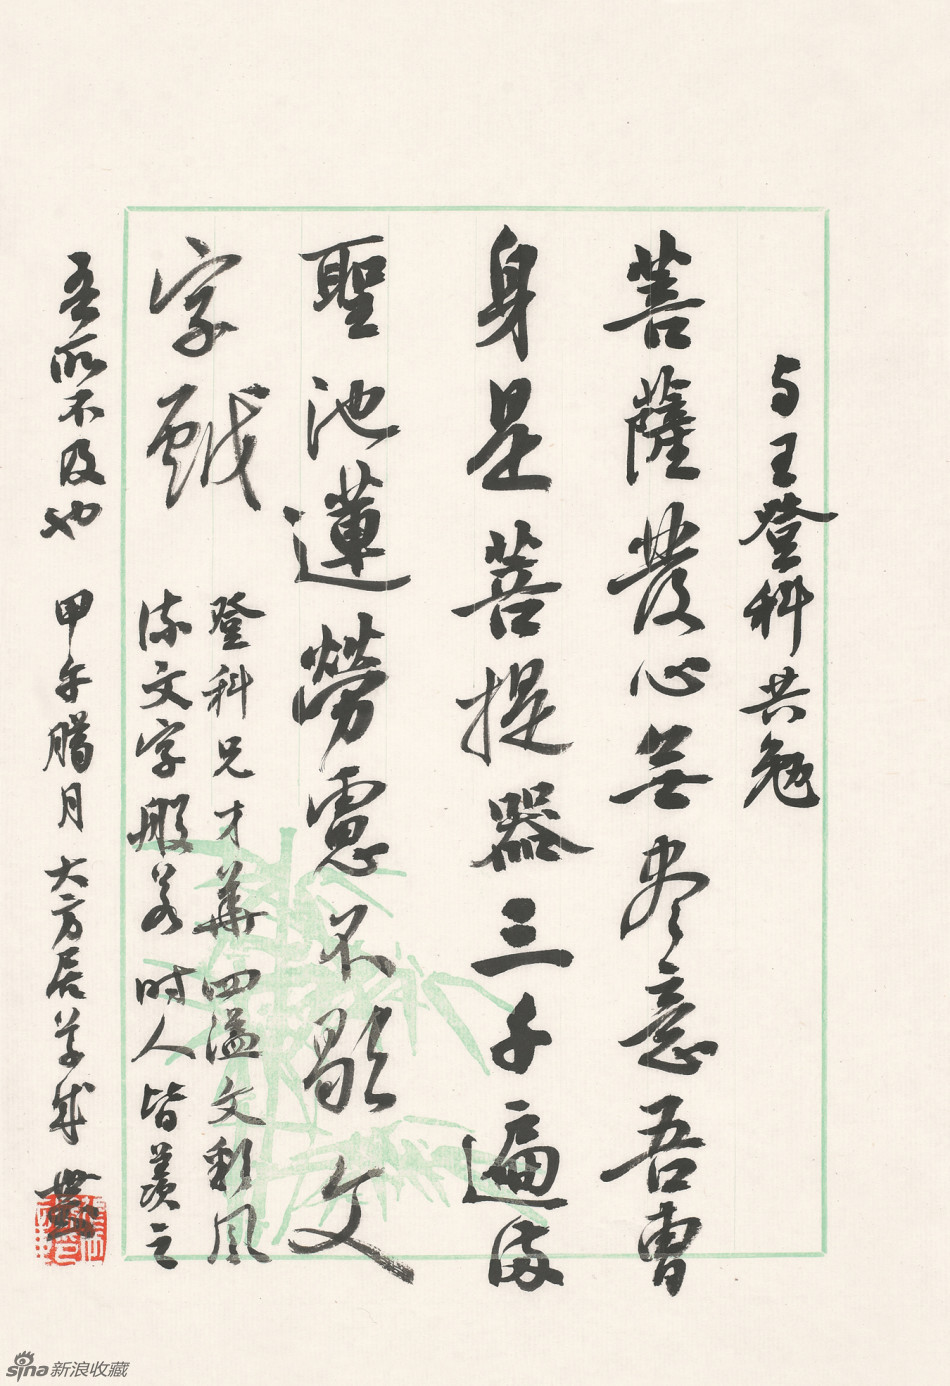 与王登科共勉
菩薩發心無尽意吾曹
身是菩提器三千遍滿
聖池蓮勞慮不歇文
字戲
登科兄才華四溢文彩風
流文字般若时人皆羡之
吾所不及也 甲午臘月 大方居草成
sina新浪收藏